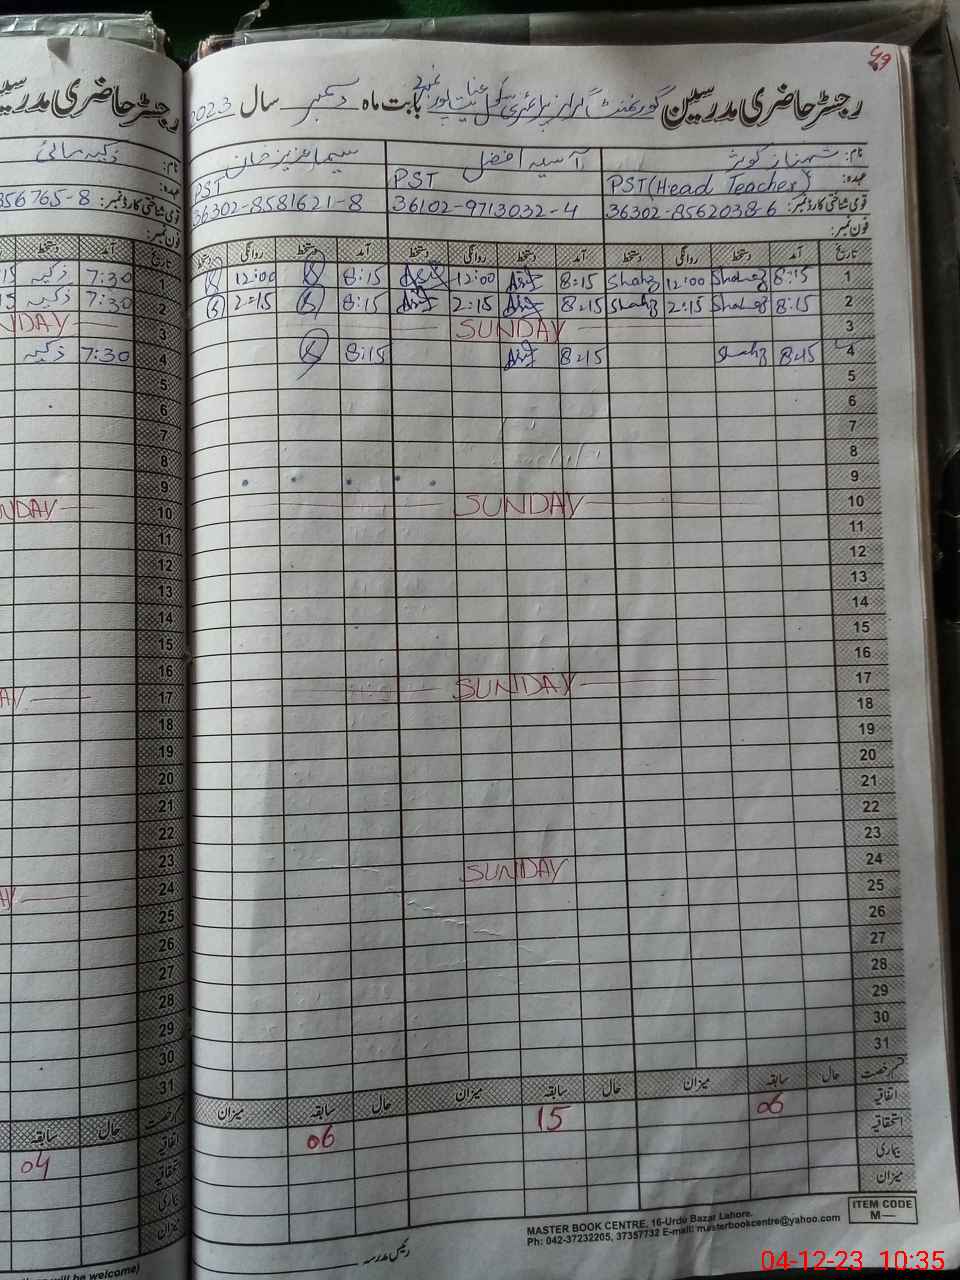 49
رجسٹر حاضری مدرسین گورنمنٹ گرلز پرائمری سکول بابت ماہ دسمبر سال 2023
نام: شہناز کوثر
آسیہ افضل
سیما عزیز خان
عہدہ: PST (Head Teacher)
PST
PST
قومی شناختی کارڈ نمبر: 36302-8562038-6
36102-9713032-4
36302-8581621-8
فون نمبر:
تاریخ آمد دستخط روانگی دستخط آمد دستخط روانگی دستخط آمد دستخط روانگی دستخط
1 8:15 Shahz 12:00 Shahz 8:15 Asif 12:00 Asif 8:15 12:00
2 8:15 Shahz 2:15 Shahz 8:15 Asif 2:15 Asif 8:15 2:15
3 SUNDAY
4 8:15 Shahz 8:15 Asif 8:15
5
6
7
8
9
10 SUNDAY
11
12
13
14
15
16
17 SUNDAY
18
19
20
21
22
23
24 SUNDAY
25
26
27
28
29
30
31
قسم رخصت حال سابقہ میزان حال سابقہ میزان حال سابقہ میزان
اتفاقیہ 06 15 06
استحقاقیہ
بیماری
میزان
رئیس مدرسہ
MASTER BOOK CENTRE, 16-Urdu Bazar Lahore.
Ph: 042-37232205, 37357732 E-mail: masterbookcentre@yahoo.com
ITEM CODE
M—
رجسٹر حاضری مدرسین
نام: ذکیہ مائی
عہدہ:
قومی شناختی کارڈ نمبر: 356765-8
فون نمبر:
تاریخ آمد دستخط
1 7:30 ذکیہ 15
2 7:30 ذکیہ 15
3 NDAY
4 7:30 ذکیہ
5
6
7
8
9
10 NDAY
11
12
13
14
15
16
17 AY
18
19
20
21
22
23
24 AY
25
26
27
28
29
30
31
قسم رخصت حال سابقہ
اتفاقیہ 04
استحقاقیہ
بیماری
میزان
will be welcome)
04-12-23 10:35